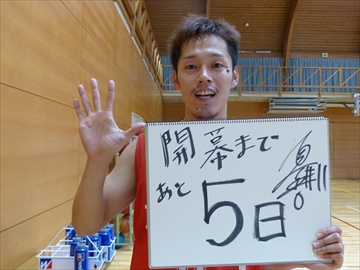 開幕まで
あと
5日